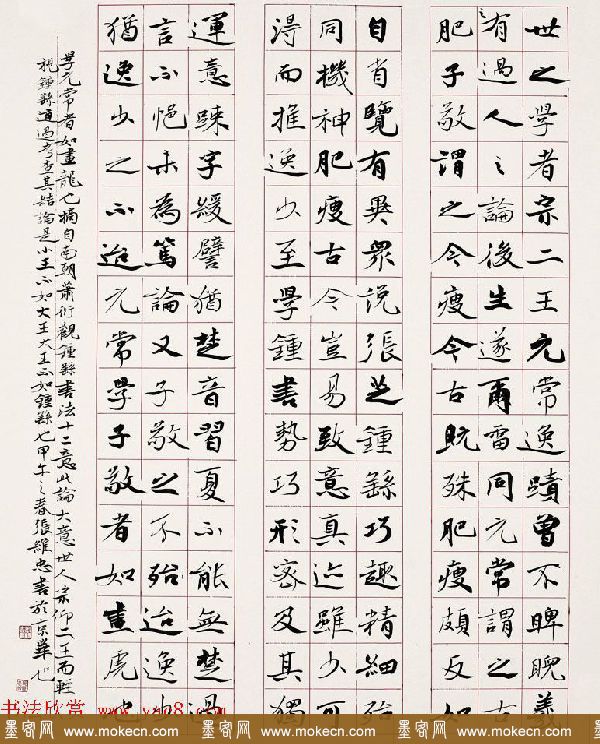 世之學者宗二王元常逸蹟曾不睥睨羲
有過人之論後生遂爾雷同元常謂之古
肥子敬謂之今瘦今古既殊肥瘦頗反如
自省覽有異眾說張芝鍾繇巧趣精細殆
同機神肥瘦古今豈易致意真迹雖少可
得而推逸少至學鍾書勢巧形密及其獨
運意踈字緩譬猶楚音習夏不能無楚過
言不悒未為篤論又子敬之不殆迨逸少
猶逸少之不迨元常學子敬者如畫虎也
學元常者如畫龍也摘自南朝蕭衍觀鍾繇書法十二意此論大意世人崇仰二王而輕
視鍾繇通過考查其結論是小王不如大王大王不如鍾繇也甲午之春張維忠書於京華也
书法欣赏 www.yac8.com
墨客网 www.mokecn.com 墨客网 www.mokecn.com 墨客网 www.mokecn.com